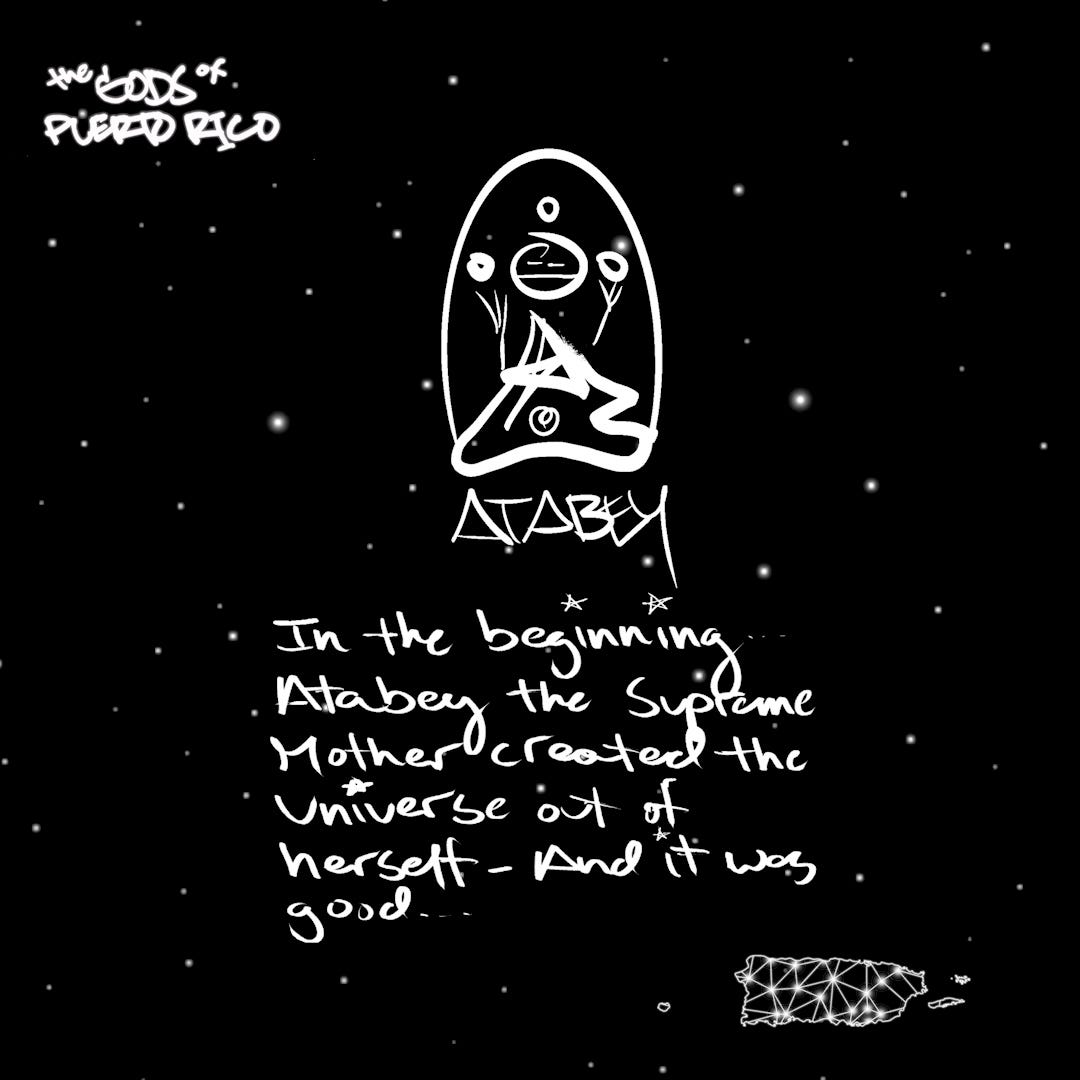 the GODS of
PUERTO RICO
ATABEY
In the beginning....
Atabey the Supreme
Mother created the
Universe out of
herself - And it was
good....